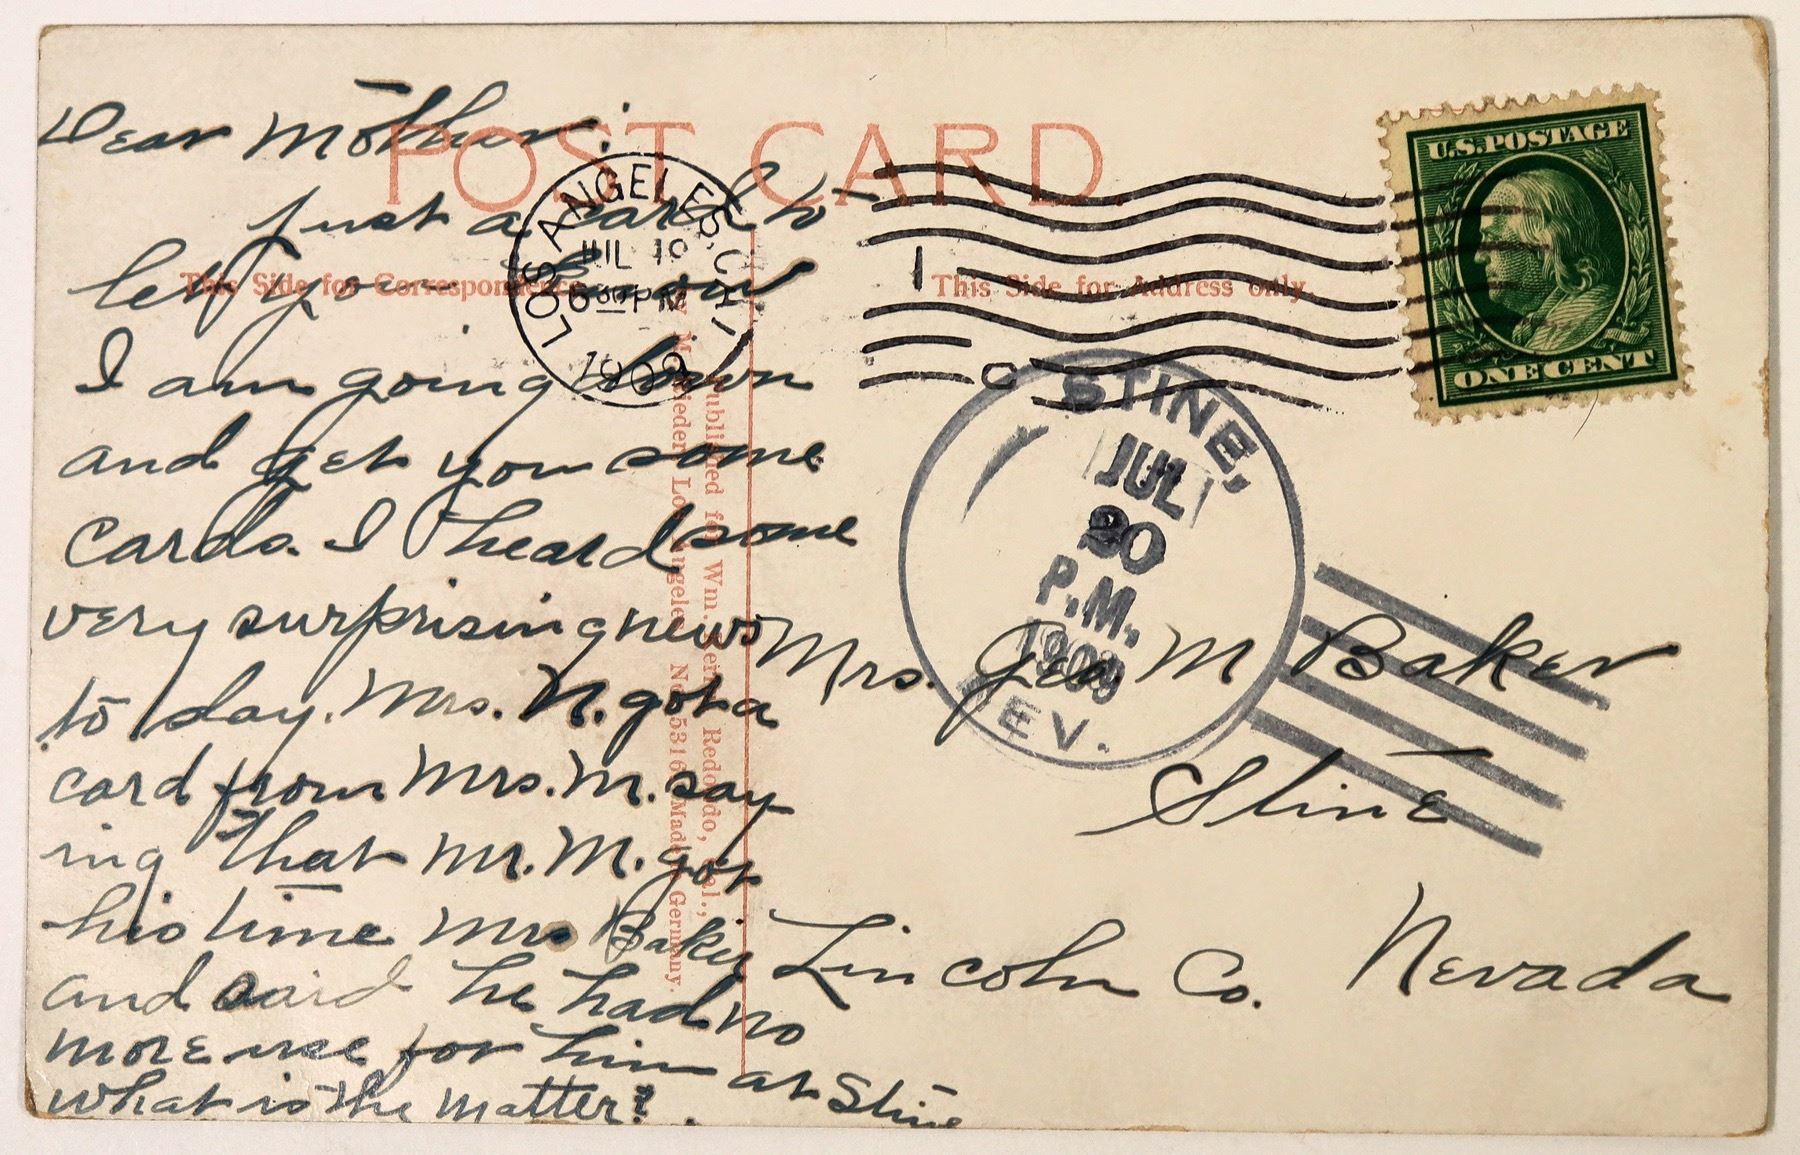 POST CARD.
This Side for Correspondence
This Side for Address only.
Dear Mother:
Just a card to
let you know
I am going down
and get you some
cards. I heard some
very surprising news
to day. Mrs. N. got a
card from Mrs. M. say
ing that Mr. M. got
his time Mrs Baker
and said he had no
more use for him at Stine
what is the matter?
LOS ANGELES, CAL.
JUL 19
6 30 PM
1909
U.S. POSTAGE
ONE CENT
STINE,
JUL
20
P.M.
1909
NEV.
Mrs. Geo. M Baker
Stine
Lincoln Co. Nevada
Published for Wm. Redondo, Cal.,
by M. Rieder, Los Angeles. No. 5316 Made in Germany.